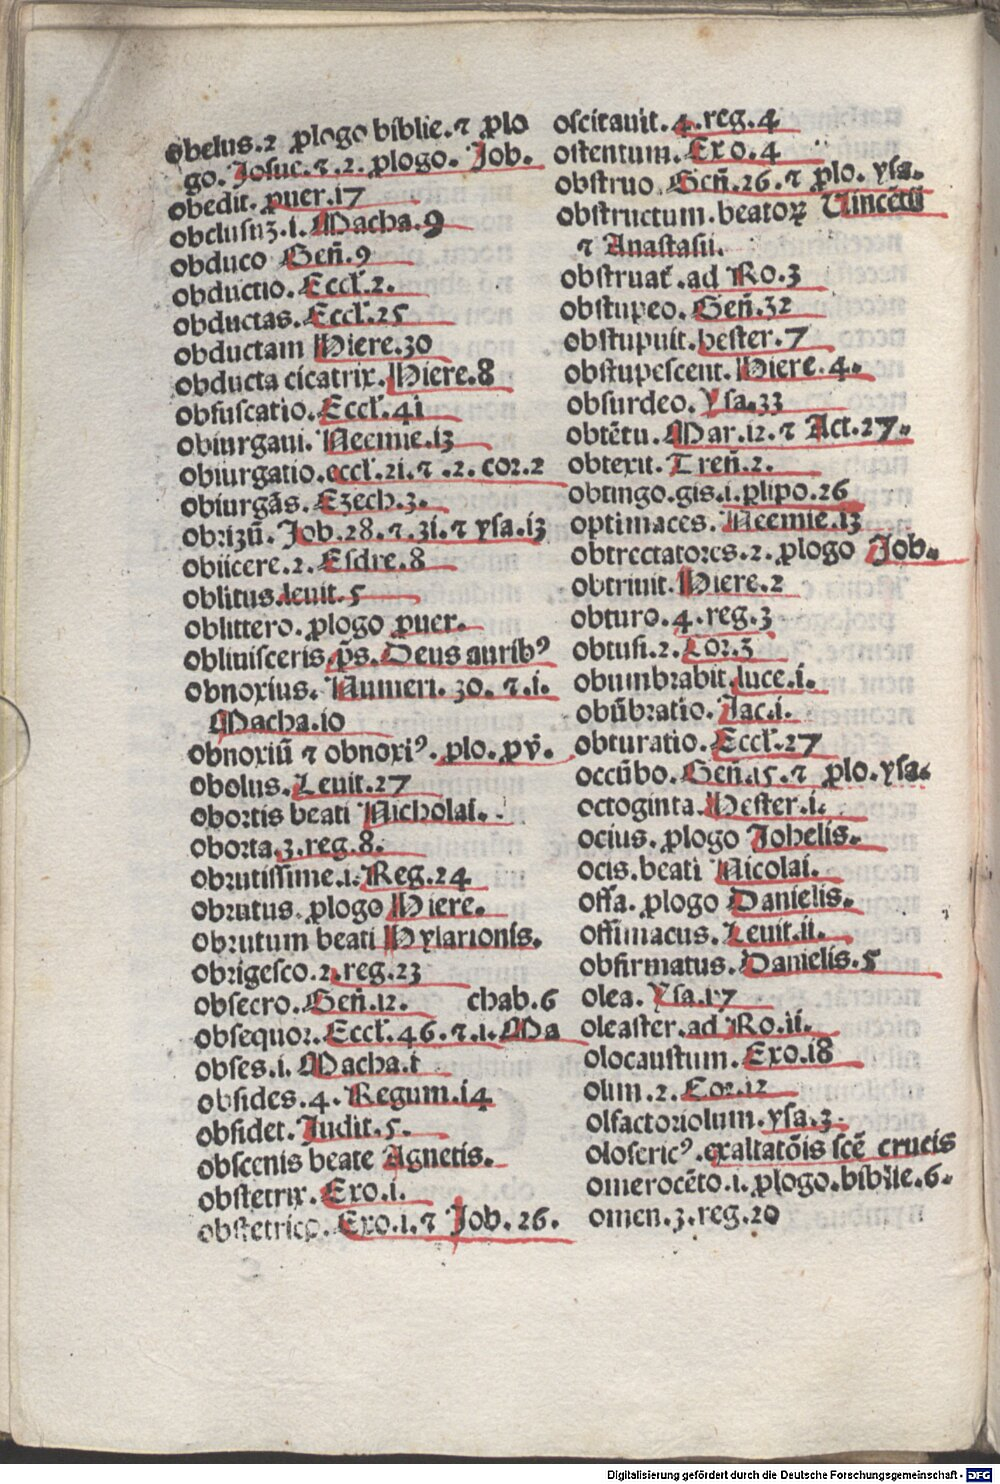 obelus.2 ꝓlogo biblie.⁊ ꝓlo
go. Josue.⁊.2. ꝓlogo. Job.
obedit. ꝓuer.17
obclusuꝫ.1. Macha.9
obduco Geñ.9
obductio. Eccl̃.2.
obductas. Eccl̃.25
obductam Hiere.30
obducta cicatrix. Hiere.8
obfuscatio. Eccl̃.41
obiurgaui. Neemie.13
obiurgatio.eccl̃.21.⁊ .2. coꝛ.2
obiurgãs. Ezech.3.
obꝛizũ. Job.28.⁊.31.⁊ ysa.13
obiicere.2. Esdre.8
oblitus.leuit.5
oblittero. ꝓlogo ꝓuer.
obliuisceris.p̃s. Deus auribꝰ
obnoxius. Numeri. 30. ⁊.1.
Macha.10
obnoxiũ ⁊ obnoxiꝰ. ꝓlo. pṽ.
obolus. Leuit.27
oboꝛtis beati Nicholai.
oboꝛta.3.reg.8.
obꝛutissime.1. Reg.24
obꝛutus. ꝓlogo Hiere.
obꝛutum beati Hylarionis.
obꝛigesco.2.reg.23
obsecro. Geñ.12. chab.6
obsequoꝛ. Eccl̃.46.⁊.1. Ma
obses.1. Macha.1
obsides.4. Regum.14
obsidet. Judit.5.
obscenis beate Agnetis.
obstetrix. Exo.1.
obstetrico. Exo.1.⁊ Job.26.
oscitauit.4.reg.4
ostentum. Exo.4
obstruo. Geñ.26.⁊ ꝓlo. ysa.
obstructum.beatoꝝ Uincẽtii
⁊ Anastasii.
obstruat̃.ad Ro.3
obstupeo. Geñ.32
obstupuit.hester.7
obstupescent. Hiere.4.
obsurdeo. Ysa.33
obtẽtu. Mar.12.⁊ Act.27.
obtexit. Treñ.2.
obtingo.gis.1.ꝑlipo.26
optimaces. Neemie.13
obtrectatoꝛes.2. ꝓlogo Job.
obtriuit. Hiere.2
obturo.4.reg.3
obtusi.2. Coꝛ.3
obumbꝛabit.luce.1.
obũbꝛatio. Jac.1.
obturatio. Eccl̃.27
occũbo. Geñ.15.⁊ ꝓlo.ysa.
octoginta. Hester.1.
ocius. ꝓlogo Johelis.
ocis.beati Nicolai.
offa. ꝓlogo Danielis.
offimacus. Leuit.11.
obfirmatus. Danielis.5
olea. Ysa.17
oleaster.ad Ro.11.
olocaustum. Exo.18
olim.2. Coꝛ.12
olfactoꝛiolum.ysa.3.
olosericꝰ.exaltatõis scẽ crucis
omerocẽto.1. ꝓlogo.biblie.6.
omen.3.reg.20
Digitalisierung gefördert durch die Deutsche Forschungsgemeinschaft - DFG